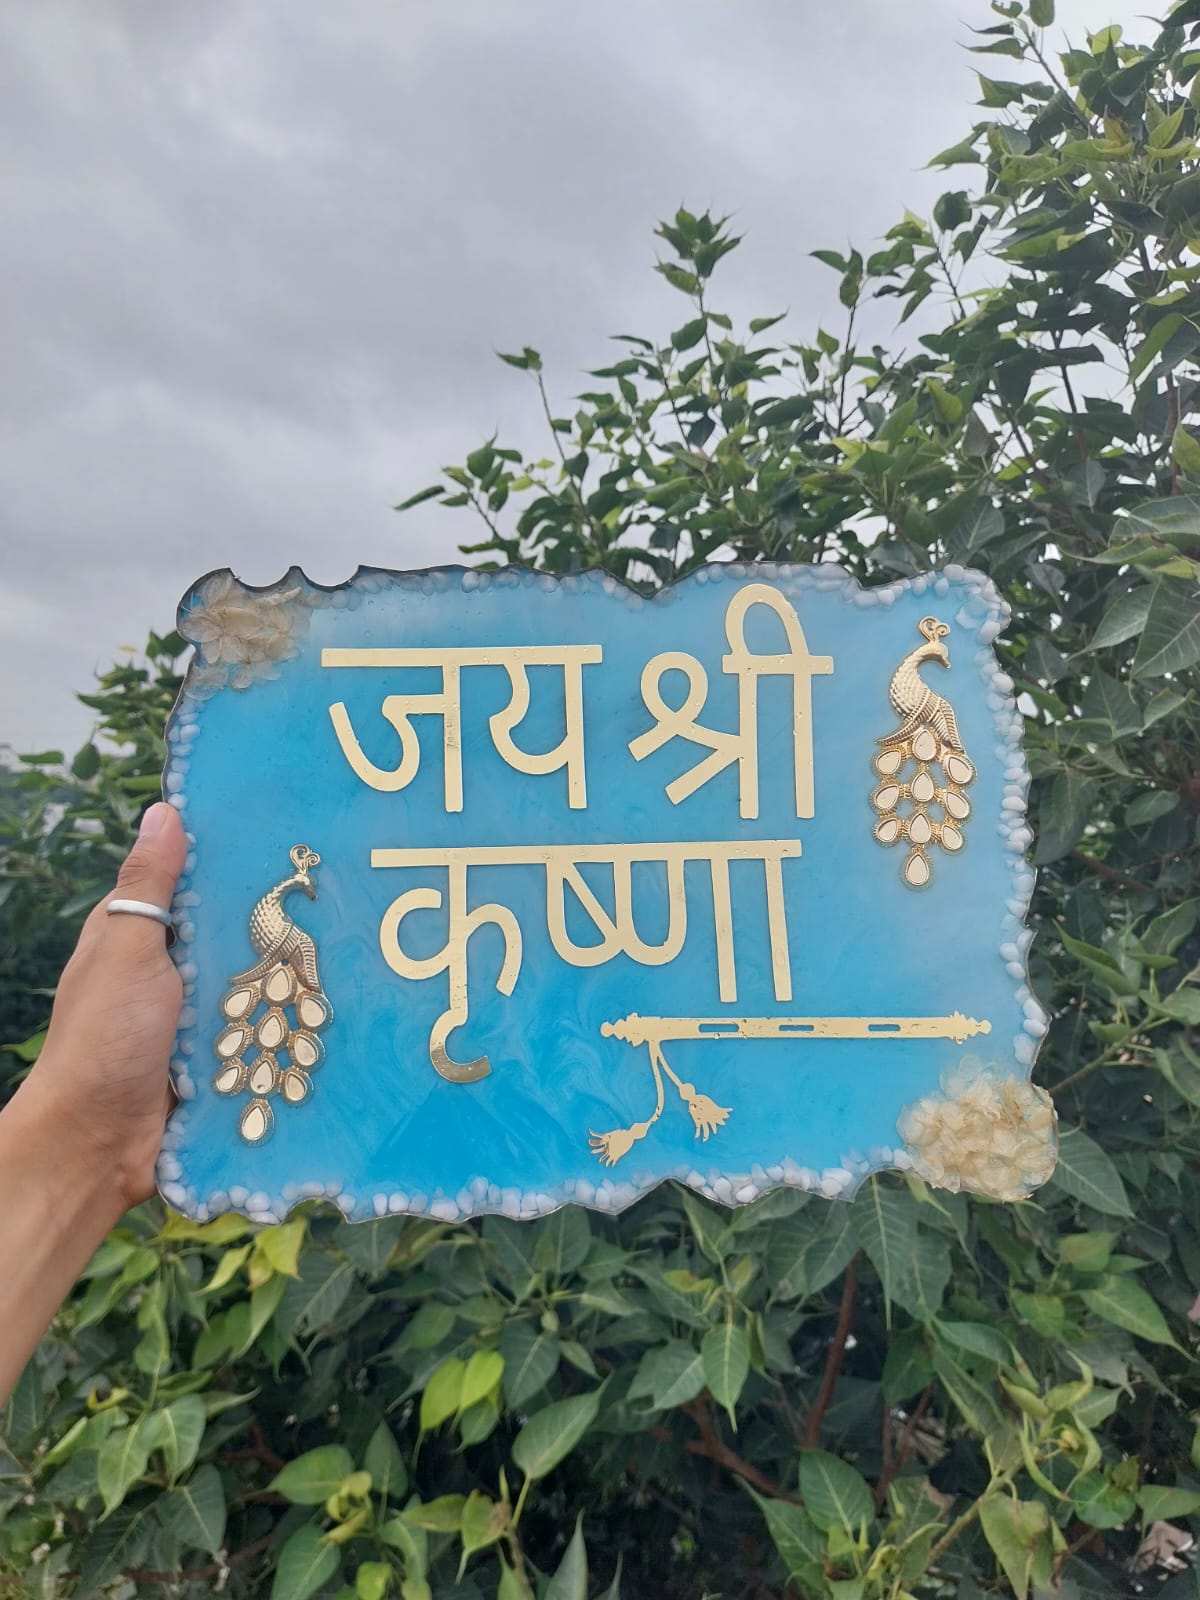 जय श्री
कृष्णा